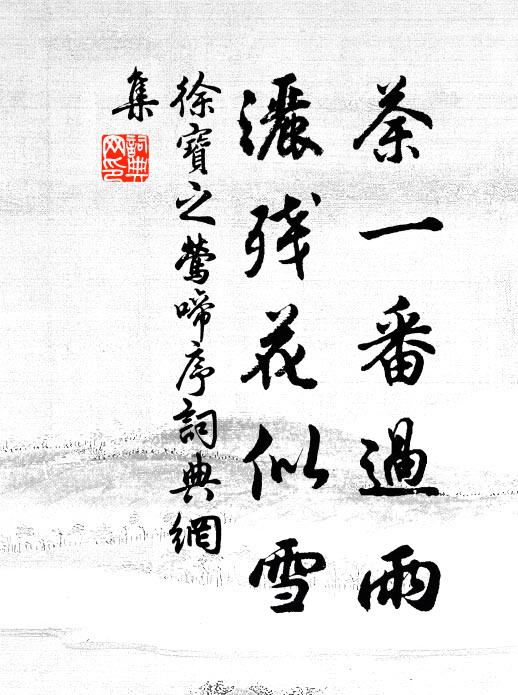 荼一番過雨
灑残花似雪
徐寶之鶯啼序詞典網
集
詞典
网印